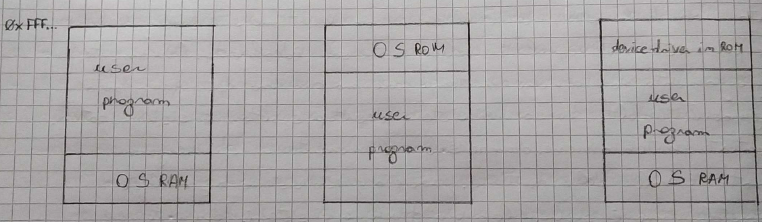 0xFFF...
user
program
OS RAM
OS ROM
user
program
device driver in ROM
user
program
OS RAM